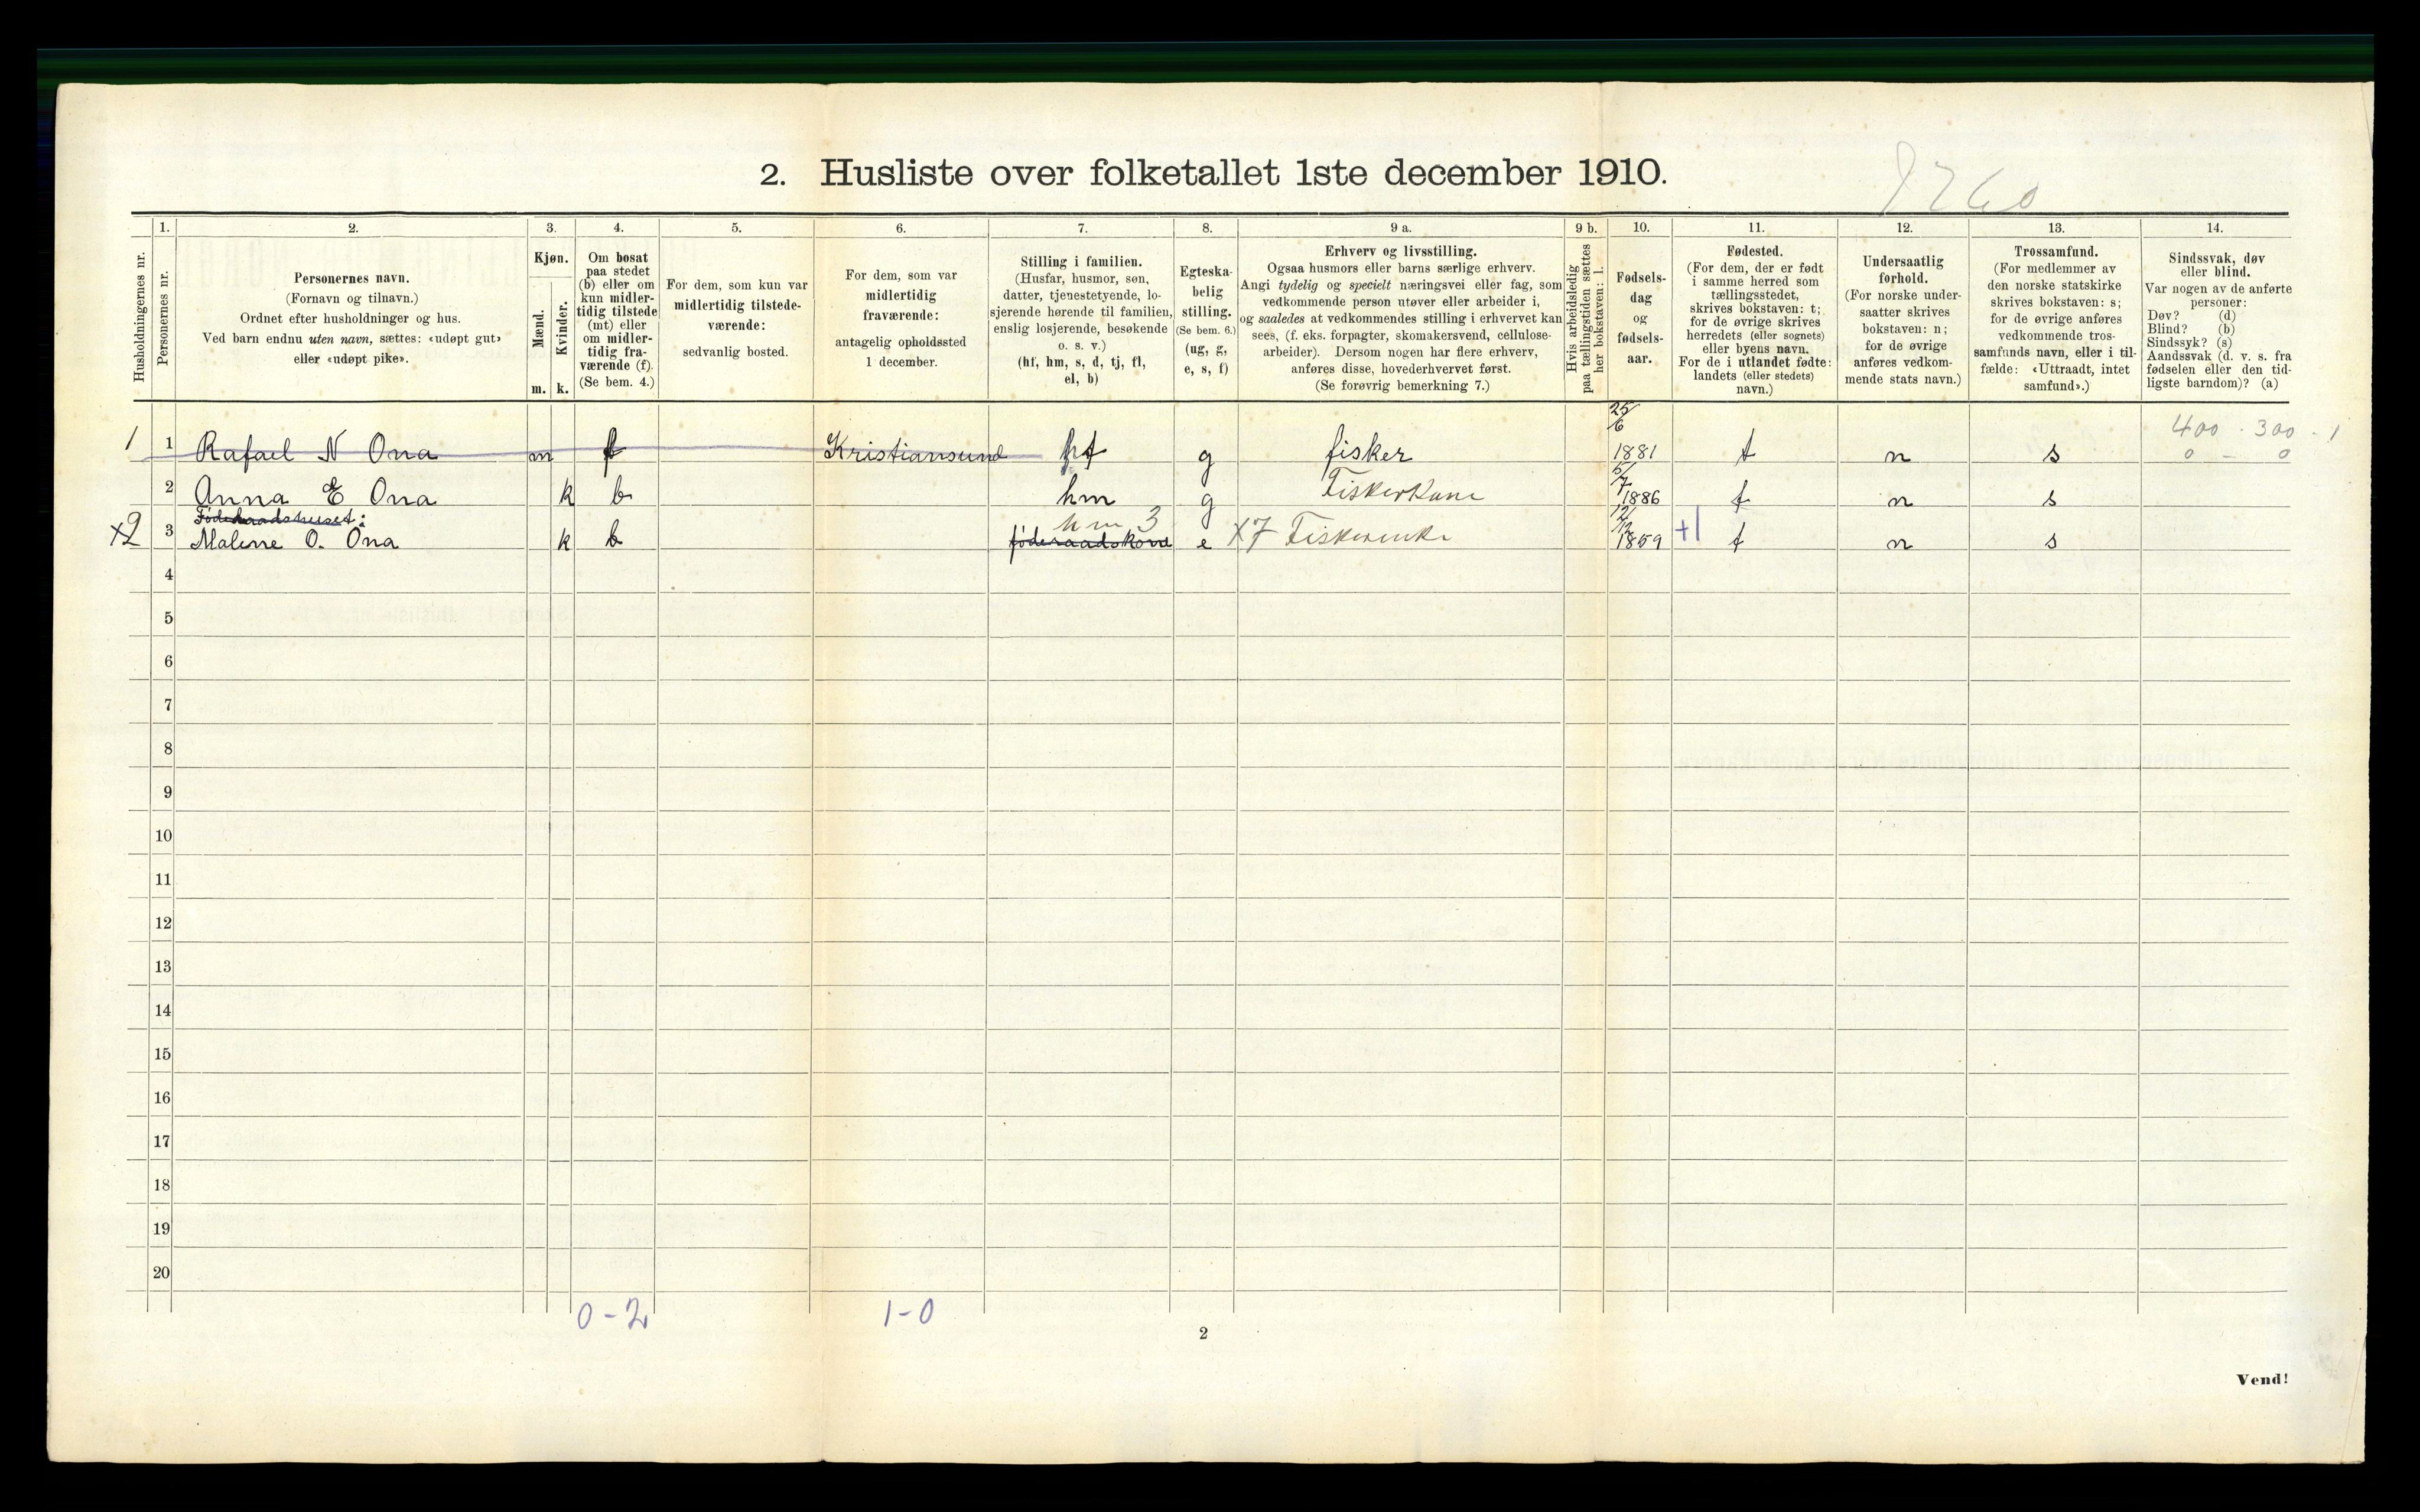 2. Husliste over folketallet 1ste december 1910.
9260
1. 2. 3. 4. 5. 6. 7. 8. 9 a. 9 b. 10. 11. 12. 13. 14.
Husholdningernes nr.
Personernes nr.
Personernes navn.
(Fornavn og tilnavn.)
Ordnet efter husholdninger og hus.
Ved barn endnu uten navn, sættes: «udøpt gut»
eller «udøpt pike».
Kjøn.
Mænd.
m.
Kvinder.
k.
Om bosat
paa stedet
(b) eller om
kun midler-
tidig tilstede
(mt) eller
om midler-
tidig fra-
værende (f).
(Se bem. 4.)
For dem, som kun var
midlertidig tilstede-
værende:
sedvanlig bosted.
For dem, som var
midlertidig
fraværende:
antagelig opholdssted
1 december.
Stilling i familien.
(Husfar, husmor, søn,
datter, tjenestetyende, lo-
sjerende hørende til familien,
enslig losjerende, besøkende
o. s. v.)
(hf, hm, s, d, tj, fl,
el, b)
Egteska-
belig
stilling.
(Se bem. 6.)
(ug, g,
e, s, f)
Erhverv og livsstilling.
Ogsaa husmors eller barns særlige erhverv.
Angi tydelig og specielt næringsvei eller fag, som
vedkommende person utøver eller arbeider i,
og saaledes at vedkommendes stilling i erhvervet kan
sees, (f. eks. forpagter, skomakersvend, cellulose-
arbeider). Dersom nogen har flere erhverv,
anføres disse, hovederhvervet først.
(Se forøvrig bemerkning 7.)
Hvis arbeidsledig
paa tællingstiden sættes
her bokstaven: l.
Fødsels-
dag
og
fødsels-
aar.
Fødested.
(For dem, der er født
i samme herred som
tællingsstedet,
skrives bokstaven: t;
for de øvrige skrives
herredets (eller sognets)
eller byens navn.
For de i utlandet fødte:
landets (eller stedets)
navn.)
Undersaatlig
forhold.
(For norske under-
saatter skrives
bokstaven: n;
for de øvrige
anføres vedkom-
mende stats navn.)
Trossamfund.
(For medlemmer av
den norske statskirke
skrives bokstaven: s;
for de øvrige anføres
vedkommende tros-
samfunds navn, eller i til-
fælde: «Uttraadt, intet
samfund».)
Sindssvak, døv
eller blind.
Var nogen av de anførte
personer:
Døv? (d)
Blind? (b)
Sindssyk? (s)
Aandssvak (d. v. s. fra
fødselen eller den tid-
ligste barndom)? (a)
25/6 400 . 300 . 1
1 1 Rafael N Ona m f Kristiansund hf g fisker 1881 t n s 0 - 0
5/7
2 Anna E Ona k b hm g Fiskerkone 1886 t n s
Føderaadshuset: hm 3 12/12
x2 3 Malene O. Ona k b føderaadskone e x7 Fiskerenke 1859 +1 t n s
4
5
6
7
8
9
10
11
12
13
14
15
16
17
18
19
20
0-2 1-0
2
Vend!